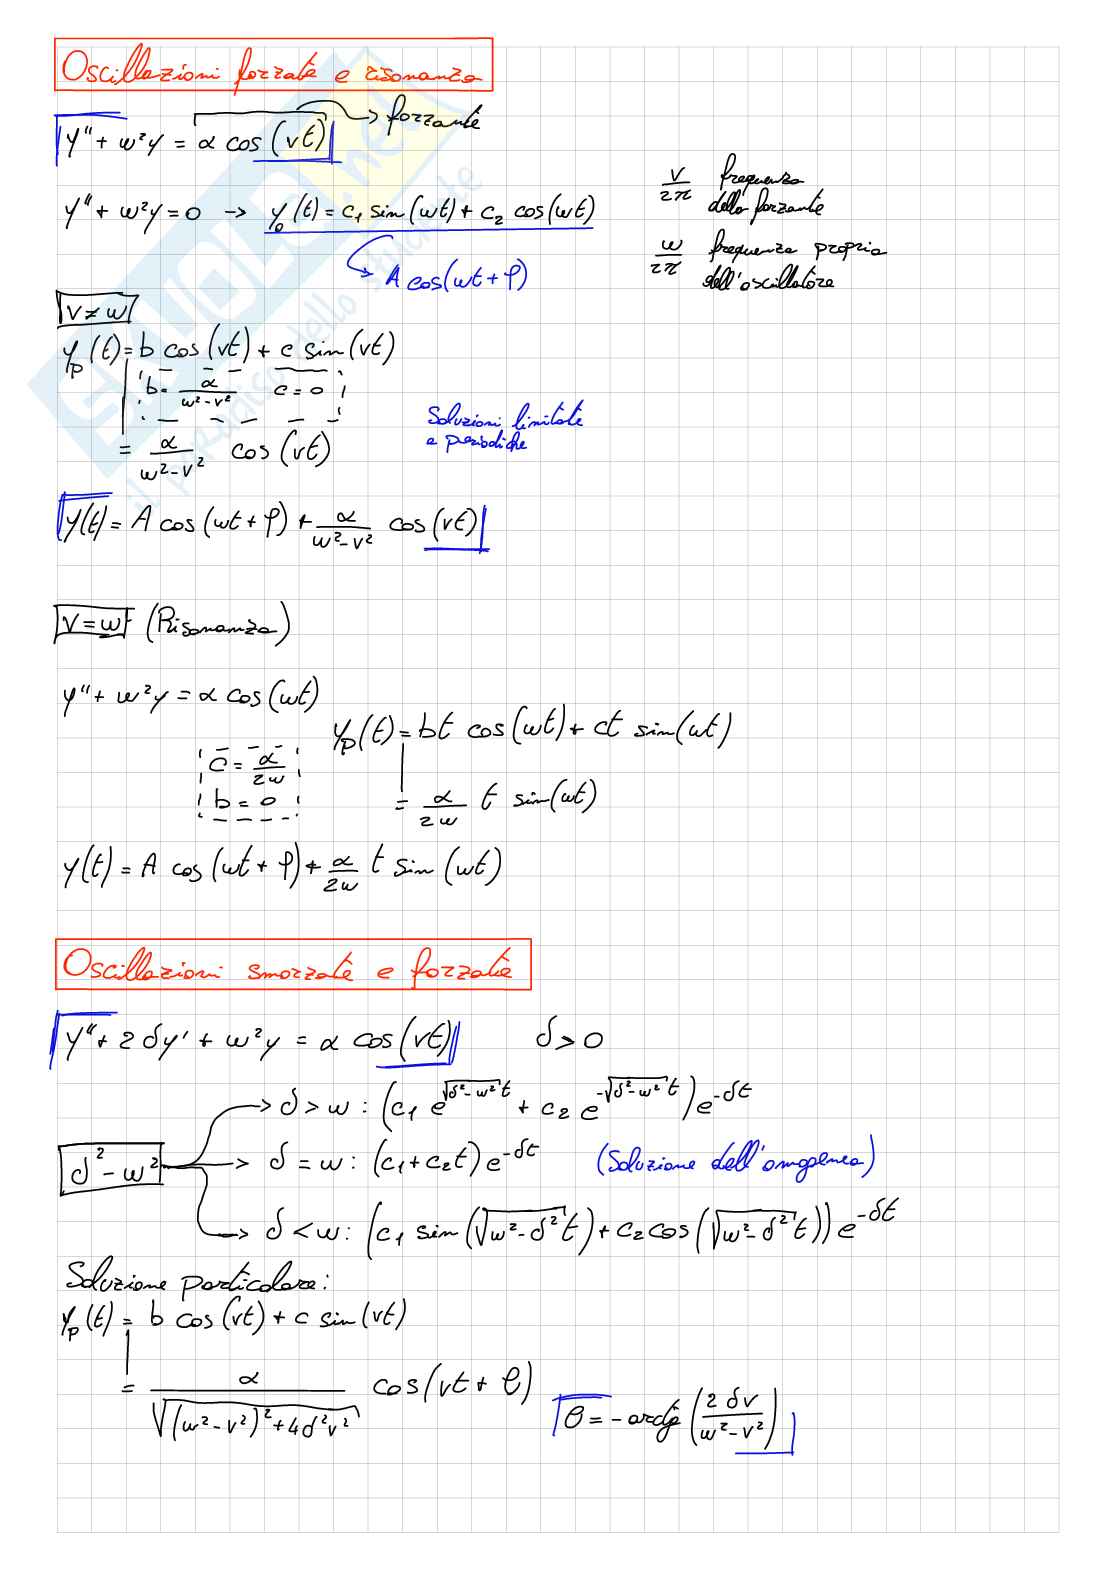 Oscillazioni forzate e risonanza
y'' + ω²y = α cos(νt) → forzante
ν/2π frequenza della forzante
y'' + ω²y = 0 → y₀(t) = c₁ sin(ωt) + c₂ cos(ωt)
ω/2π frequenza propria dell'oscillatore
A cos(ωt + φ)
ν ≠ ω
yₚ(t) = b cos(νt) + c sin(νt)
b = α/(ω²-ν²) c = 0
Soluzioni limitate e periodiche
= α/(ω²-ν²) cos(νt)
y(t) = A cos(ωt + φ) + α/(ω²-ν²) cos(νt)
ν = ω (Risonanza)
y'' + ω²y = α cos(ωt)
yₚ(t) = bt cos(ωt) + ct sin(ωt)
c = α/2ω
b = 0
= α/2ω t sin(ωt)
y(t) = A cos(ωt + φ) + α/2ω t sin(ωt)
Oscillazioni smorzate e forzate
y'' + 2δy' + ω²y = α cos(νt) δ > 0
→ δ > ω : (c₁ e^(√(δ²-ω²) t) + c₂ e^(-√(δ²-ω²) t)) e^(-δt)
δ² - ω² → δ = ω : (c₁ + c₂t) e^(-δt) (Soluzione dell'omogenea)
→ δ < ω : (c₁ sin(√(ω²-δ²) t) + c₂ cos(√(ω²-δ²) t)) e^(-δt)
Soluzione particolare:
yₚ(t) = b cos(νt) + c sin(νt)
= α/√((ω²-ν²)² + 4δ²ν²) cos(νt + θ)
θ = - arctg (2δν/(ω²-ν²))
SKUOLA.net
il paradiso dello studente